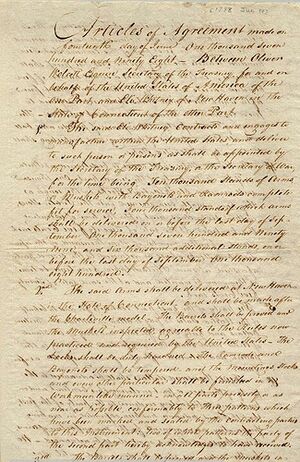 c 1798 June 14?
Articles of Agreement made on
fourteenth day of June One thousand seven
hundred and ninety Eight - Between Oliver
Wolcott Esquire Secretary of the Treasury, for and on
behalf of the United States of America of the
one Part, and Eli Whitney of New Haven in the
State of Connecticut of the other Part.
The said Eli Whitney Contracts and engages to
manufacture within the United States and deliver
to such person or persons as shall be appointed by
the Secretary of the Treasury, or the Secretary of War
for the time being, Ten thousand Stands of Arms
or Muskets with Bayonets and Ramrods complete
fit for service, Four thousand stands of which arms
shall be delivered on or before the last day of Sep
tember One thousand seven hundred and Ninety
nine, and Six thousand additional stands, on or
before the last day of September One thousand
eight hundred.
The said Arms shall be delivered at New Haven
in the State of Connecticut, and shall be made after
the Charleville model. The Barrels shall be proved and
the Muskets inspected agreeable to the Rules now
practiced and required by the United States - The
Locks shall be duly hardened & the Ramrods and
Bayonets shall be tempered and the mountings, Stocks
and every other particular shall be finished in a
workmanlike manner, in all parts precisely or as
near as possible conformably to three patterns which
have been marked and sealed by the contracting parties
to this Instrument, two of which patterns the party of
the second part hereby acknowledges to have received.
The Barrels shall be proved and the Muskets in